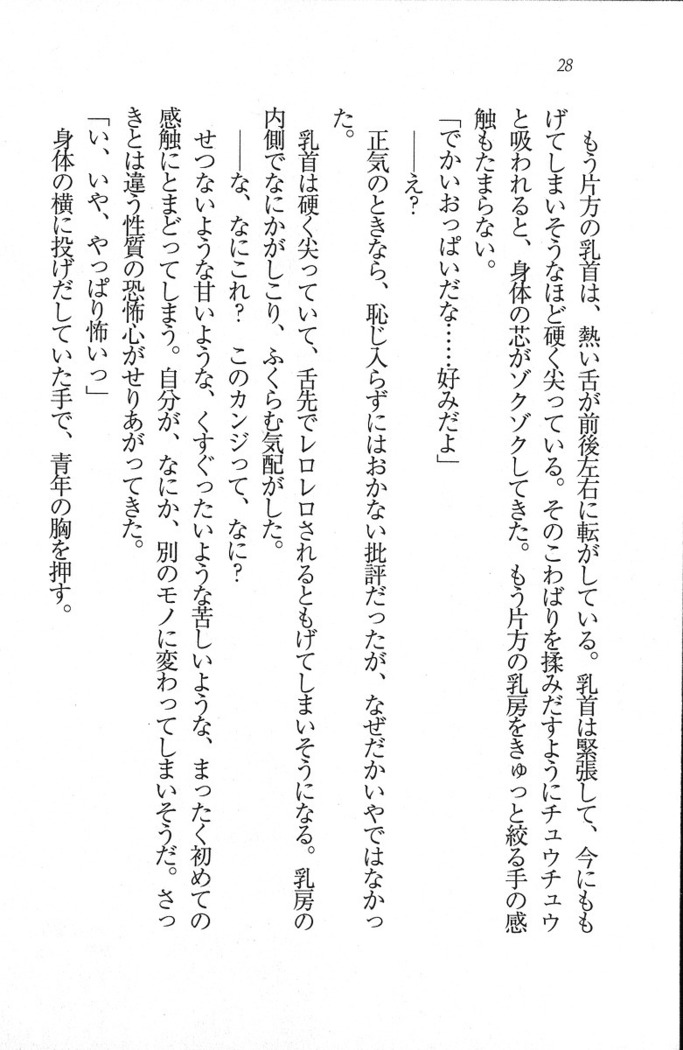 28
もう片方の乳首は、熱い舌が前後左右に転がしている。乳首は緊張して、今にもも
げてしまいそうなほど硬く尖っている。そのこわばりを揉みだすようにチュウチュウ
と吸われると、身体の芯がゾクゾクしてきた。もう片方の乳房をきゅっと絞る手の感
触もたまらない。
「でかいおっぱいだな……好みだよ」
――え？
正気のときなら、恥じ入らずにはおかない批評だったが、なぜだかいやではなかっ
た。
乳首は硬く尖っていて、舌先でレロレロされるともげてしまいそうになる。乳房の
内側でなにかがしこり、ふくらむ気配がした。
――な、なにこれ？　このカンジって、なに？
せつないような甘いような、くすぐったいような苦しいような、まったく初めての
感触にとまどってしまう。自分が、なにか、別のモノに変わってしまいそうだ。さっ
きとは違う性質の恐怖心がせりあがってきた。
「い、いや、やっぱり怖いっ」
身体の横に投げだしていた手で、青年の胸を押す。